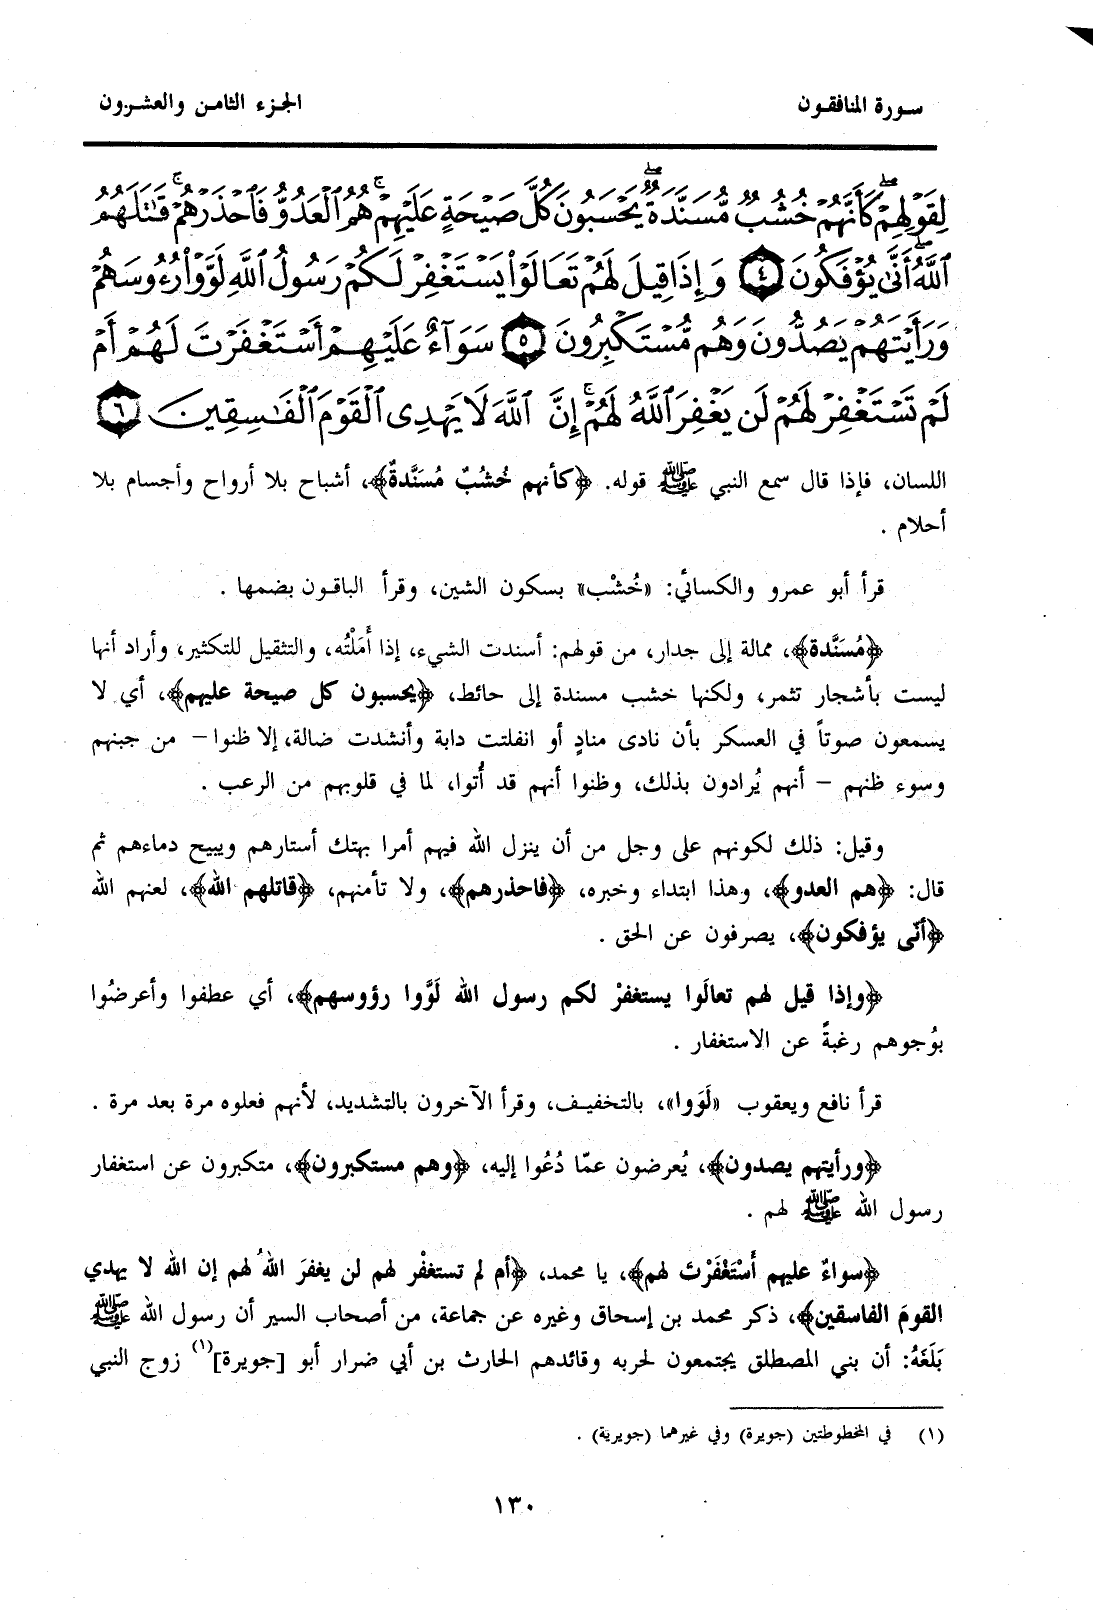 سورة المنافقون
الجزء الثامن والعشرون
لِقَوْلِهِمْ كَأَنَّهُمْ خُشُبٌ مُّسَنَّدَةٌ يَحْسَبُونَ كُلَّ صَيْحَةٍ عَلَيْهِمْ هُمُ الْعَدُوُّ فَاحْذَرْهُمْ قَاتَلَهُمُ
اللَّهُ أَنَّى يُؤْفَكُونَ ٤ وَإِذَا قِيلَ لَهُمْ تَعَالَوْا يَسْتَغْفِرْ لَكُمْ رَسُولُ اللَّهِ لَوَّوْا رُءُوسَهُمْ
وَرَأَيْتَهُمْ يَصُدُّونَ وَهُم مُّسْتَكْبِرُونَ ٥ سَوَاءٌ عَلَيْهِمْ أَسْتَغْفَرْتَ لَهُمْ أَمْ
لَمْ تَسْتَغْفِرْ لَهُمْ لَن يَغْفِرَ اللَّهُ لَهُمْ إِنَّ اللَّهَ لَا يَهْدِى الْقَوْمَ الْفَاسِقِينَ ٦
اللسان، فإذا قال سمع النبي ﷺ قوله. ﴿كأنهم خُشُبٌ مُسَنَّدةٌ﴾، أشباح بلا أرواح وأجسام بلا
أحلام .
قرأ أبو عمرو والكسائي: «خُشْب» بسكون الشين، وقرأ الباقون بضمها .
﴿مُسَنَّدة﴾، ممالة إلى جدار، من قولهم: أسندت الشيء، إذا أَمَلْتُه، والتثقيل للتكثير، وأراد أنها
ليست بأشجار تثمر، ولكنها خشب مسندة إلى حائط، ﴿يحسبون كل صيحة عليهم﴾، أي لا
يسمعون صوتاً في العسكر بأن نادى منادٍ أو انفلتت دابة وأنشدت ضالة، إلا ظنوا – من جبنهم
وسوء ظنهم – أنهم يُرادون بذلك، وظنوا أنهم قد أُتوا، لما في قلوبهم من الرعب .
وقيل: ذلك لكونهم على وجل من أن ينزل الله فيهم أمرا بهتك أستارهم ويبيح دماءهم ثم
قال: ﴿هم العدو﴾، وهذا ابتداء وخبره، ﴿فاحذرهم﴾، ولا تأمنهم، ﴿قاتلهم الله﴾، لعنهم الله
﴿أنّى يؤفكون﴾، يصرفون عن الحق .
﴿وإذا قيل لهم تعالَوا يستغفرْ لكم رسول الله لَوَّوا رؤوسهم﴾، أي عطفوا وأعرضُوا
بوُجوهم رغبةً عن الاستغفار .
قرأ نافع ويعقوب «لَوَوا»، بالتخفيف، وقرأ الآخرون بالتشديد، لأنهم فعلوه مرة بعد مرة .
﴿ورأيتهم يصدون﴾، يُعرضون عمّا دُعُوا إليه، ﴿وهم مستكبرون﴾، متكبرون عن استغفار
رسول الله ﷺ لهم .
﴿سواءٌ عليهم أَسْتَغْفَرْتَ لهم﴾، يا محمد، ﴿أم لم تستغفْر لهم لن يغفرَ اللهُ لهم إن الله لا يهدي
القومَ الفاسقين﴾، ذكر محمد بن إسحاق وغيره عن جماعة، من أصحاب السير أن رسول الله ﷺ
بَلَغَهُ: أن بني المصطلق يجتمعون لحربه وقائدهم الحارث بن أبي ضرار أبو [جويرة](١) زوج النبي
(١) في المخطوطتين (جويرة) وفي غيرهما (جويرية) .
١٣٠